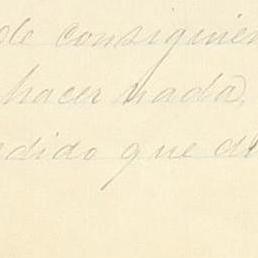 de consiguien
hacer nada,
dido que di